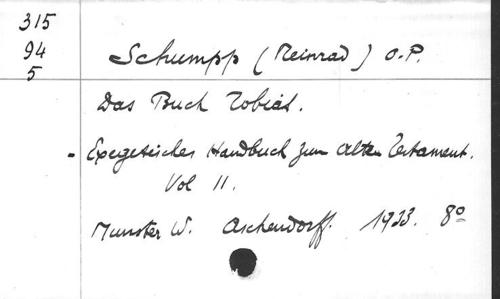 315
94
5
Schumpp (Meinrad) O.P.
Das Buch Tobias.
- Exegetisches Handbuch zum Alten Testament.
Vol 11.
Munster W. Aschendorff. 1933. 8º